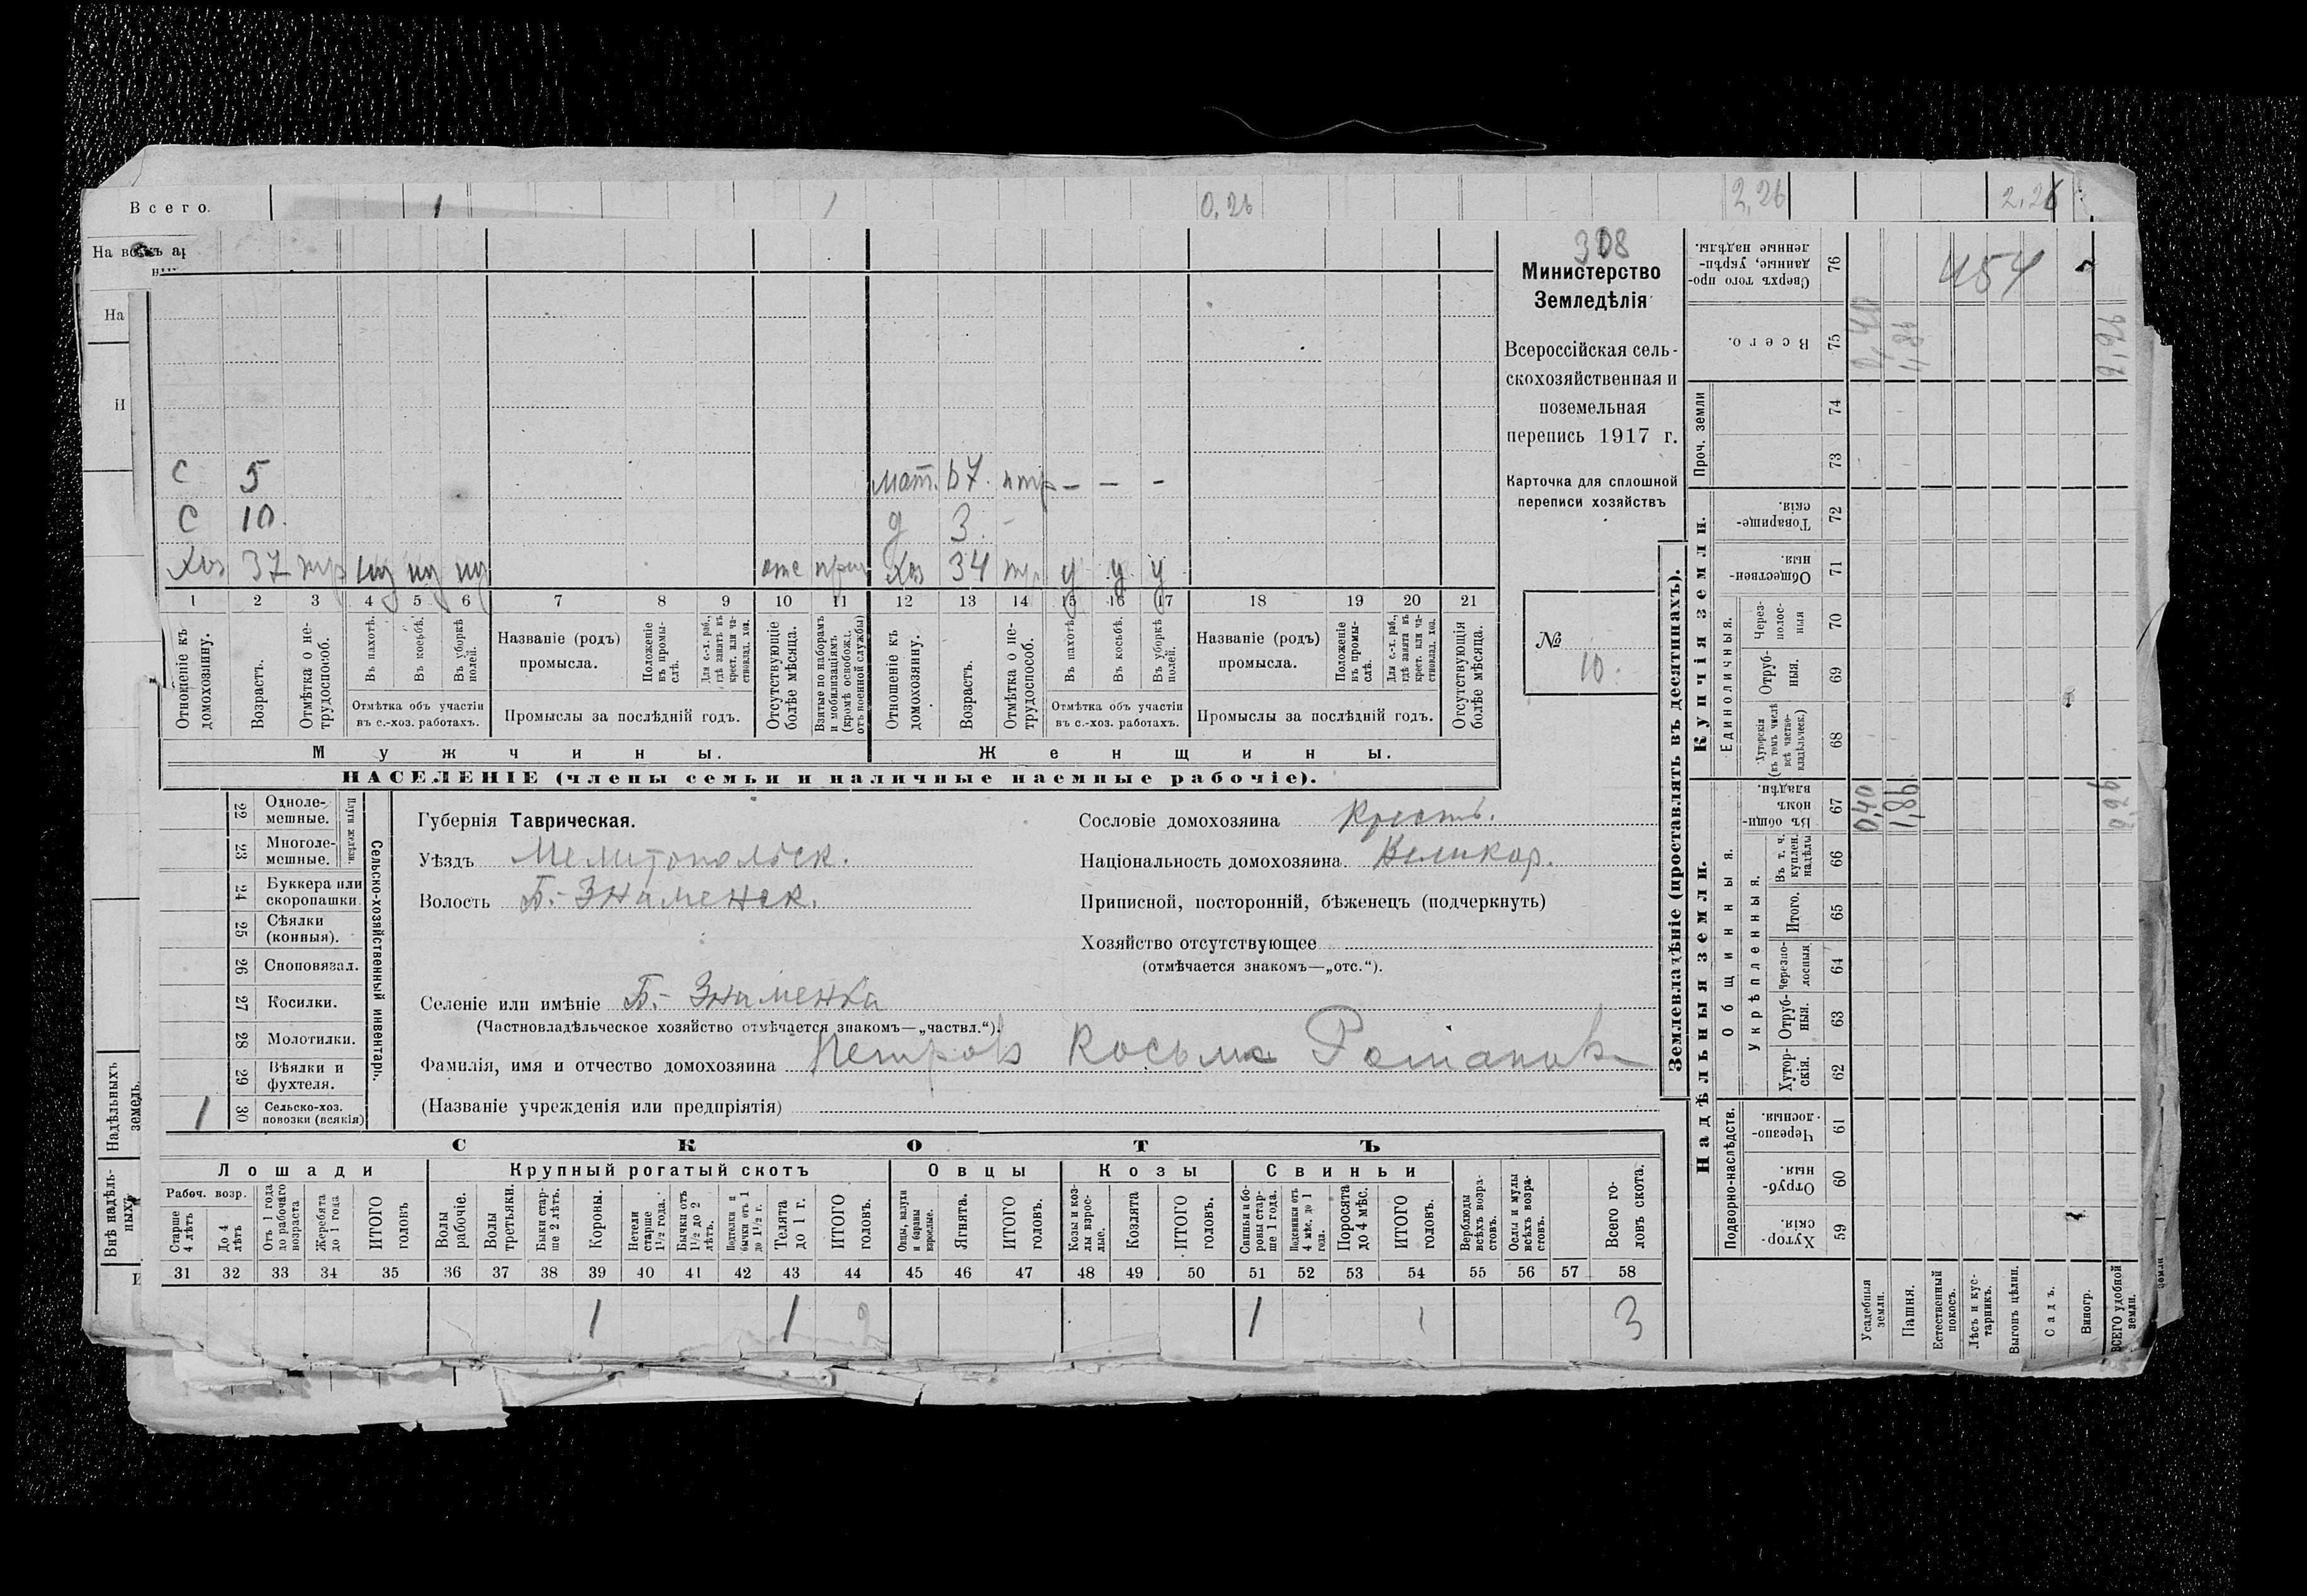 Всего. 1 1 0,26 2,26 2,26
На
Н
С 5 мат. 67. нтр - - -
С 10. д 3. -
Хоз 37 тр отс Хоз 34 тр у у у
1 2 3 4 5 6 7 8 9 10 11 12 13 14 15 16 17 18 19 20 21
Отношеніе къ домохозяину.
Возрастъ.
Отмѣтка о нетрудоспособ.
Въ пахотѣ.
Въ косьбѣ.
Въ уборкѣ полей.
Отмѣтка объ участіи
въ с.-хоз. работахъ.
Названіе (родъ)
промысла.
Положеніе въ промыслѣ.
Для с.-х. раб., гдѣ занятъ въ крест. или частновлад. хоз.
Промыслы за послѣдній годъ.
Отсутствующіе болѣе мѣсяца.
Взятые по наборамъ и мобилизаціямъ (кромѣ освобожд. отъ военной службы)
Отношеніе къ домохозяину.
Возрастъ.
Отмѣтка о нетрудоспособ.
Въ пахотѣ.
Въ косьбѣ.
Въ уборкѣ полей.
Отмѣтка объ участіи
въ с.-хоз. работахъ.
Названіе (родъ)
промысла.
Положеніе въ промыслѣ.
Для с.-х. раб., гдѣ занята въ крест. или частновлад. хоз.
Промыслы за послѣдній годъ.
Отсутствующія болѣе мѣсяца.
Мужчины. Женщины.
НАСЕЛЕНІЕ (члены семьи и наличные наемные рабочіе).
308
Министерство
Земледѣлія
Всероссійская сель-
скохозяйственная и
поземельная
перепись 1917 г.
Карточка для сплошной
переписи хозяйствъ
№
10.
Сельско-хозяйственный инвентарь.
Плуги желѣзн.
22 Одноле-
мешные.
23 Многоле-
мешные.
24 Буккера или
скоропашки.
25 Сѣялки
(конныя).
26 Сноповязал.
27 Косилки.
28 Молотилки.
29 Вѣялки и
фухтеля.
1 30 Сельско-хоз.
повозки (всякія)
Губернія Таврическая.
Уѣздъ Мелитопольск.
Волость Б.-Знаменск.
Сословіе домохозяина Крестьь.
Національность домохозяина Великор.
Приписной, посторонній, бѣженецъ (подчеркнуть)
Хозяйство отсутствующее
(отмѣчается знакомъ—„отс.“).
Селеніе или имѣніе Б.- Знаменка
(Частновладѣльческое хозяйство отмѣчается знакомъ—„частвл.“).
Фамилія, имя и отчество домохозяина Петров Косьма
(Названіе учрежденія или предпріятія)
СКОТЪ
Лошади Крупный рогатый скотъ Овцы Козы Свиньи
Рабоч. возр.
Старше 4 лѣтъ
До 4 лѣтъ
Отъ 1 года до рабочаго возраста
Жеребята до 1 года
ИТОГО головъ
Волы рабочіе.
Волы третьяки.
Быки старше 2 лѣтъ.
Коровы.
Нетели старше 1 1/2 года.
Бычки отъ 1 1/2 до 2 лѣтъ.
Подтелки и бычки отъ 1 до 1 1/2 г.
Телята до 1 г.
ИТОГО головъ.
Овцы, валухи и бараны взрослые.
Ягнята.
ИТОГО головъ.
Козы и козлы взрослые.
Козлята
ИТОГО головъ.
Свиньи и боровы старше 1 года.
Подсвинки отъ 4 мѣс. до 1 года.
Поросята до 4 мѣс.
ИТОГО головъ.
Верблюды всѣхъ возрастовъ.
Ослы и мулы всѣхъ возрастовъ.
Всего головъ скота.
31 32 33 34 35 36 37 38 39 40 41 42 43 44 45 46 47 48 49 50 51 52 53 54 55 56 57 58
1 1 2 1 1 3
Землевладѣніе (проставлять въ десятинахъ).
Купчія земли.
Надѣльныя земли.
Сверхъ того проданные, укрѣпленные надѣлы. 76 454
Всего. 75 0,40 1,86 2,26
Проч. земли 74 73
Товарищескія. 72
Общественныя. 71
Единоличныя.
Черезполосныя 70
Отрубныя. 69
Хуторскія (въ томъ числѣ всѣ частновладѣльческ.) 68
Общинныя.
Въ общиномъ владѣн. 67 0,40 1,86 2,26
Укрѣпленныя.
Въ т. ч. куплен. надѣлы 66
Итого. 65
Черезполосныя 64
Отрубныя. 63
Хуторскія. 62
Подворно-наслѣдств.
Черезполосныя. 61
Отрубныя. 60
Хуторскія. 59
Усадебныя земли.
Пашня.
Естественный покосъ.
Лѣсъ и кустарникъ.
Выгонъ цѣлин.
Садъ.
Виногр.
ВСЕГО удобной земли.
Надѣльныхъ земель.
Внѣ надѣльныхъ